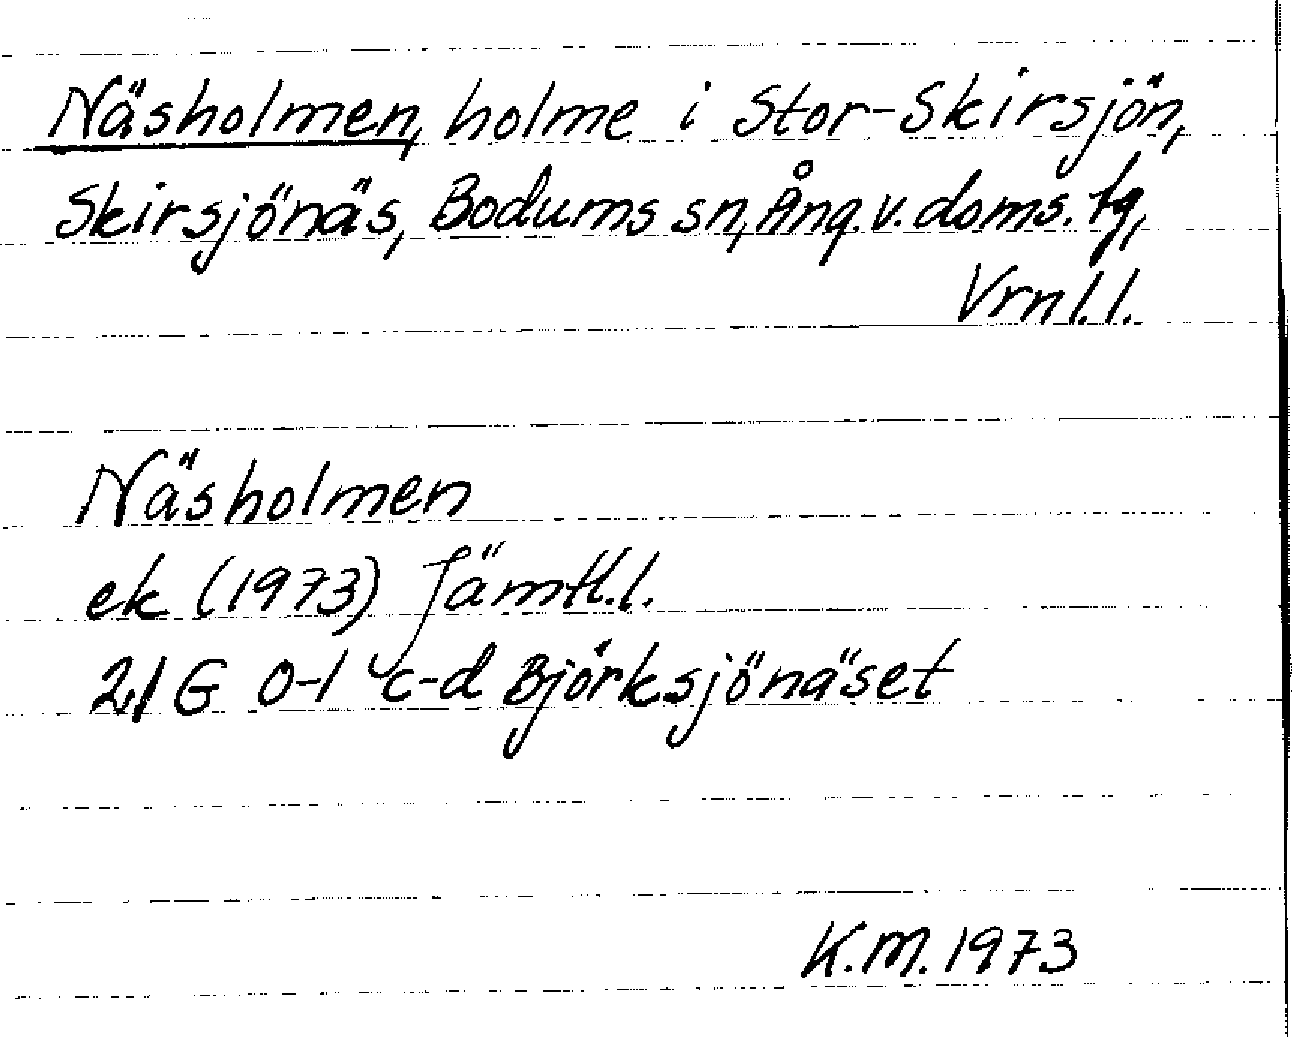 Näsholmen, holme i Stor-Skirsjön,
Skirsjönäs, Bodums sn, Ång. v. doms. tg,
Vrnl. l.
Näsholmen
ek (1973) Jämtl. l.
21 G 0-1 c-d Björksjönäset
K.M. 1973